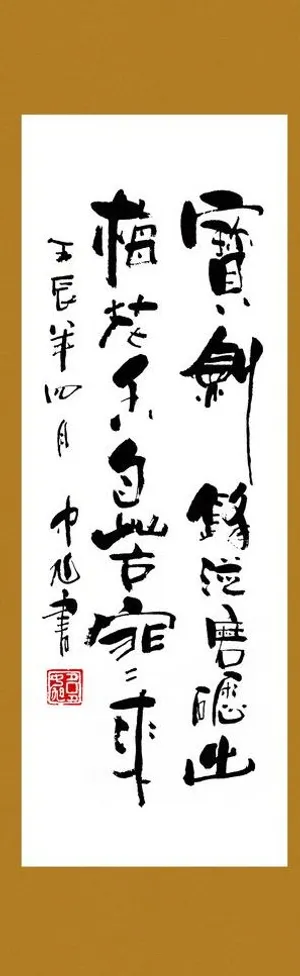 寶劍鋒從磨礪出
梅花香自苦寒來
壬辰年四月 書